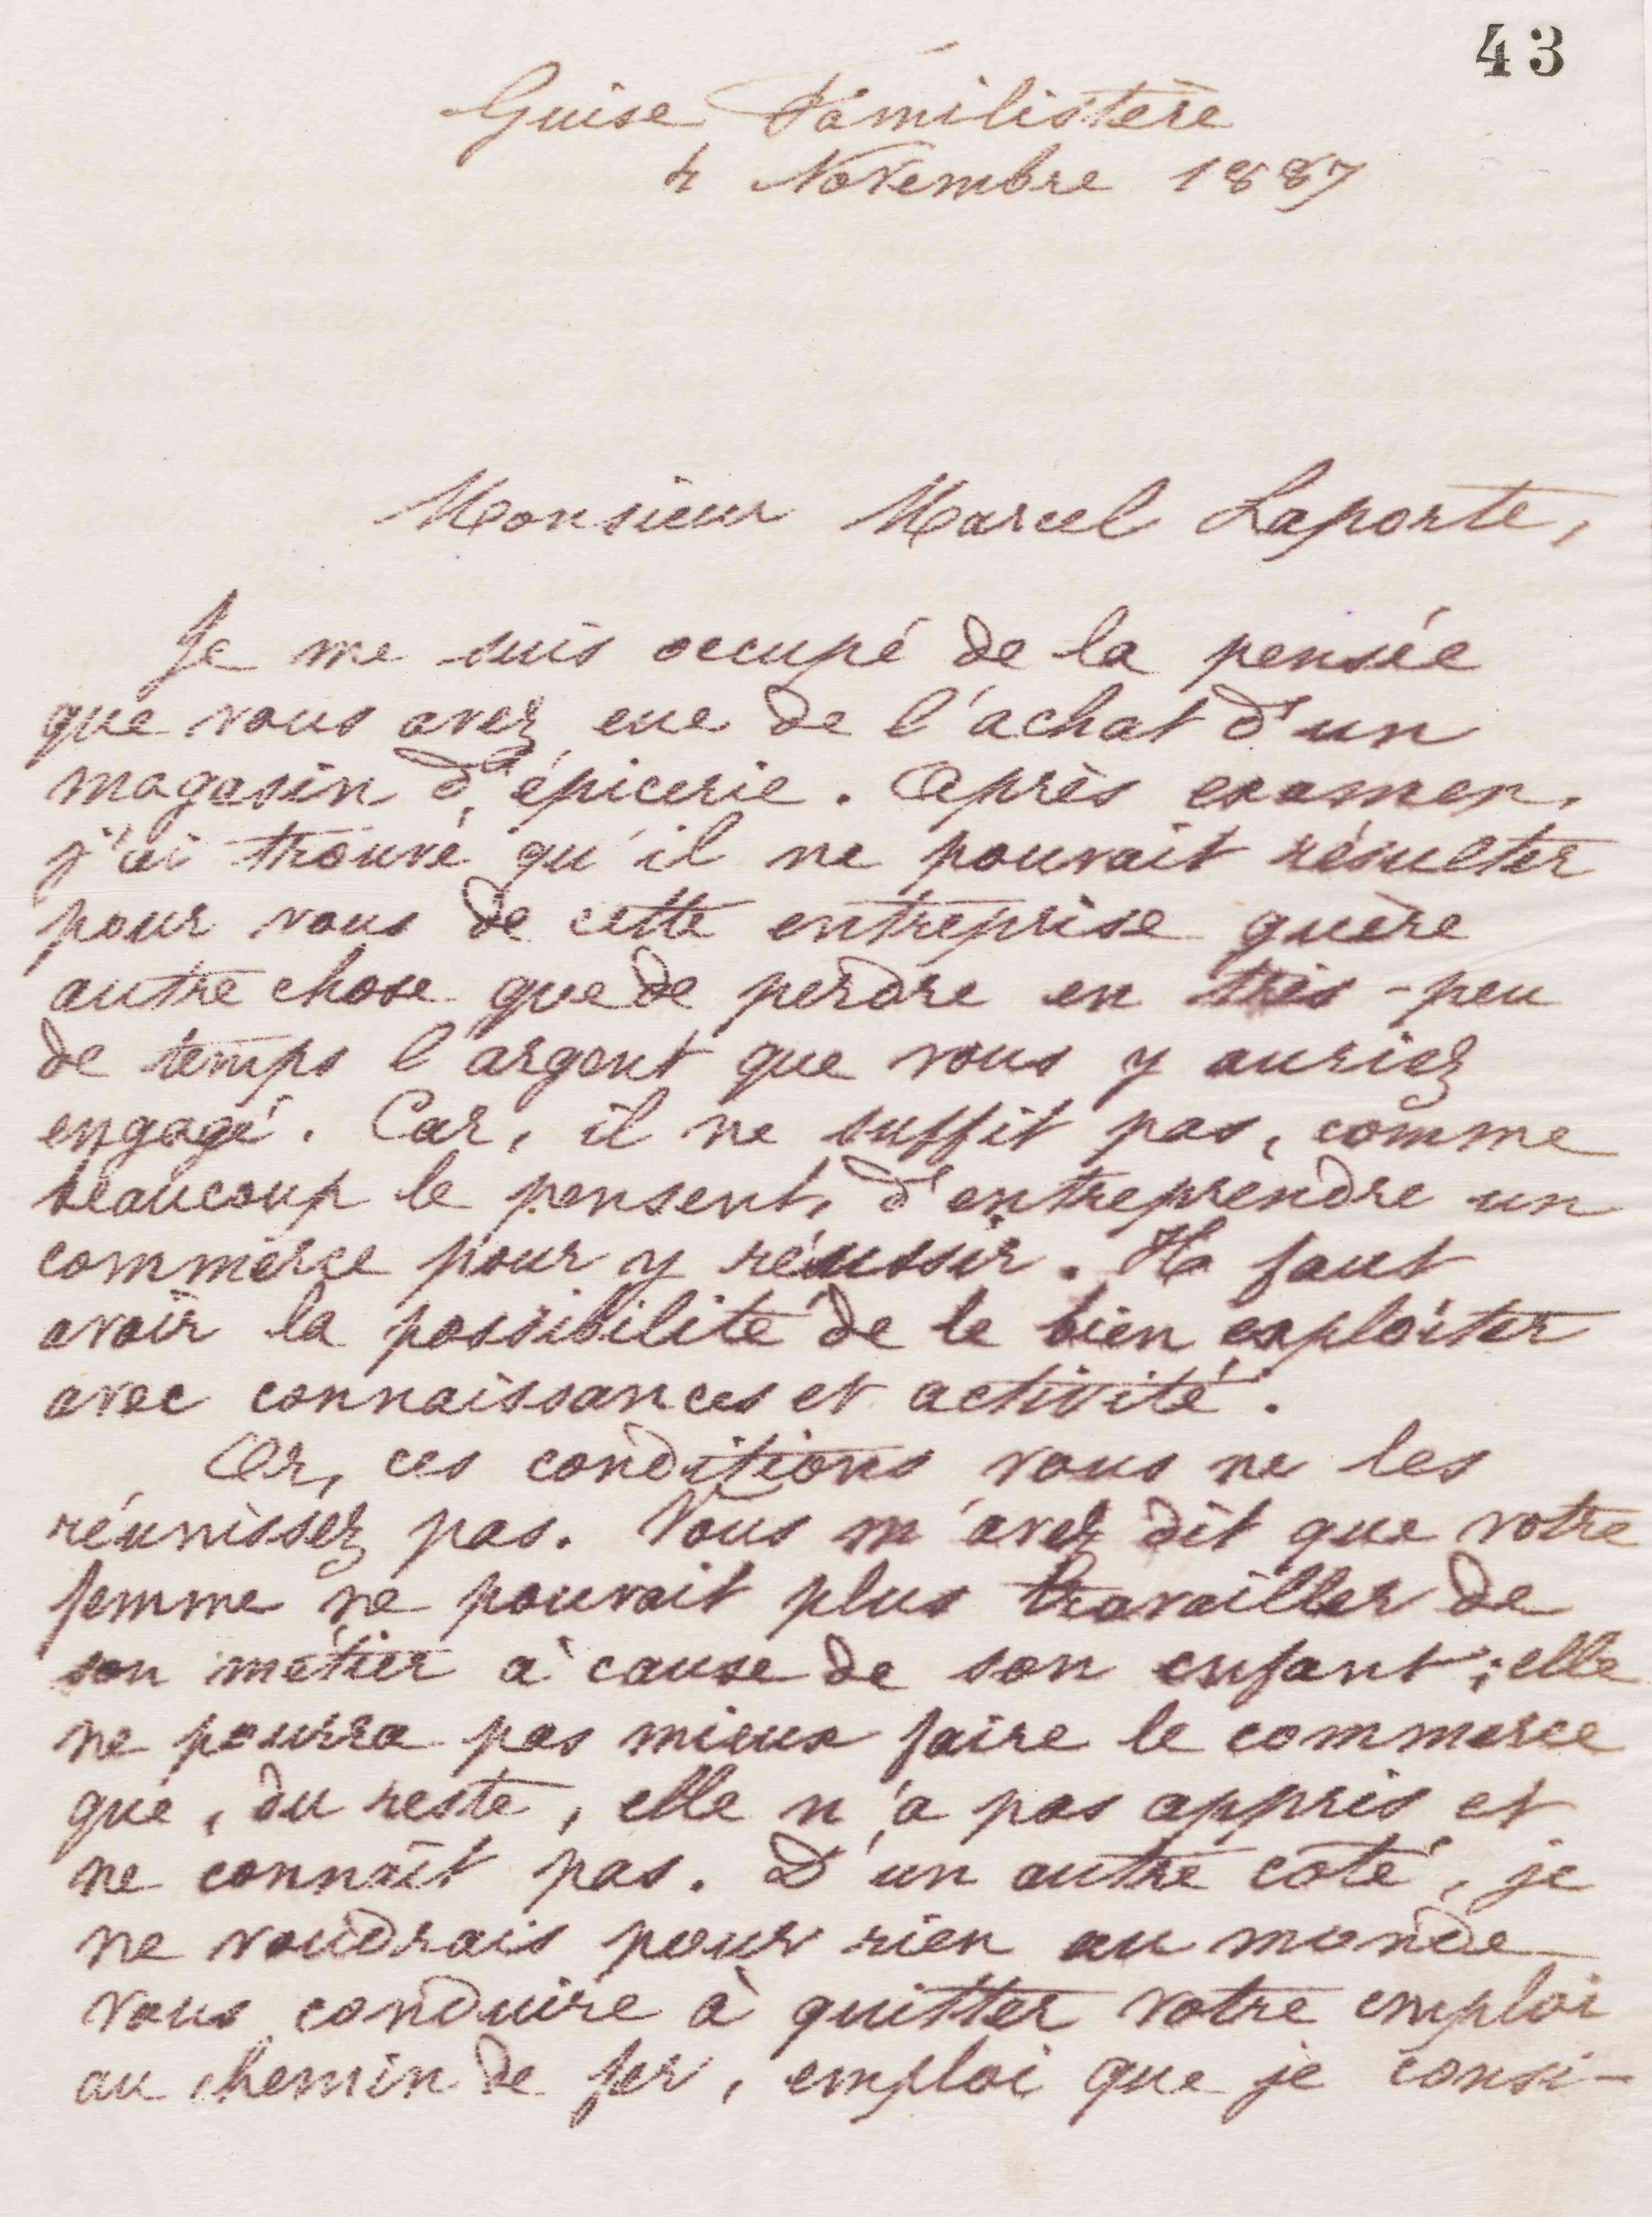 43
Guise Familistère
4 Novembre 1887
Monsieur Marcel Laporte,
Je me suis occupé de la pensée
que vous avez eue de l'achat d'un
magasin d'épicerie. Après examen,
j'ai trouvé qu'il ne pouvait résulter
pour vous de cette entreprise guère
autre chose que de perdre en très-peu
de temps l'argent que vous y auriez
engagé. Car, il ne suffit pas, comme
beaucoup le pensent, d'entreprendre un
commerce pour y réussir. Il faut
avoir la possibilité de le bien exploiter
avec connaissances et activité.
Or, ces conditions vous ne les
réunissez pas. Vous m'avez dit que votre
femme ne pouvait plus travailler de
son métier à cause de son enfant; elle
ne pourra pas mieux faire le commerce
que, du reste, elle n'a pas appris et
ne connaît pas. D'un autre côté, je
ne voudrais pour rien au monde
vous conduire à quitter votre emploi
au chemin de fer, emploi que je consi-